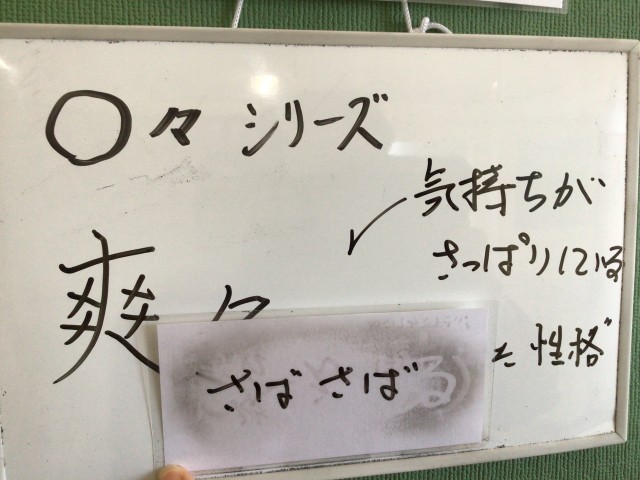 〇々 シリーズ
気持ちが
さっぱりしている
爽々
性格
さばさば